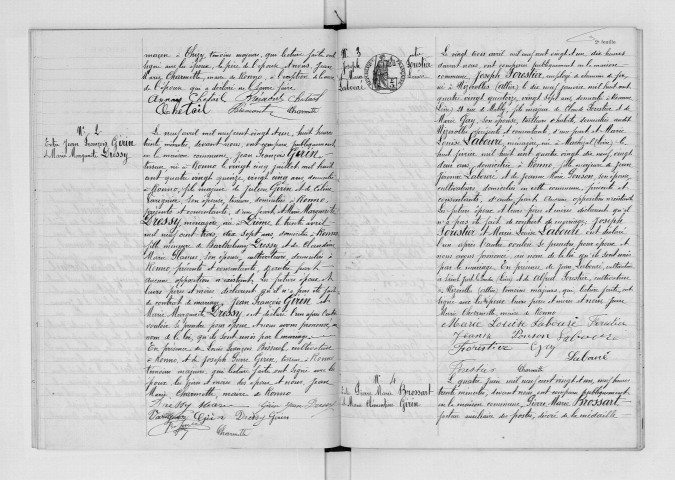 maçon à Thizy, témoins majeurs, qui lecture faite ont
signé avec les époux, le père de l'épouse et nous, Jean
Marie Charmette, maire de Ronno, à l'exception de la mère
de l'époux, qui a déclaré ne le savoir faire
Chetail Chetail
Chetail Charmette
N° 2
Entre Jean François Girin
et Marie Marguerite Dressy
Le neuf avril mil neuf cent vingt et un, huit heures
trente minutes, devant nous ont comparu publiquement
en la maison commune, Jean François Girin,
tisseur né à Ronno le vingt cinq juillet mil huit
cent quatre vingt quinze, vingt cinq ans, domicilié
à Ronno, fils majeur de Julien Girin et de
son épouse, tisseurs, domiciliés à Ronno,
présents et consentants, d'une part, et Marie Marguerite
Dressy, ménagère, née à le trente avril
mil neuf cent trois, dix sept ans, domiciliée à Ronno
fille mineure de Barthélemy Dressy et de Claudine
Marie son épouse, cultivateurs, domiciliés à
Ronno, présents et consentants, d'autre part
Aucune opposition n'existant. Les futurs époux et
leurs pères et mères déclarent qu'il n'a pas été fait
de contrat de mariage. Jean François Girin et
Marie Marguerite Dressy ont déclaré l'un après l'autre
vouloir se prendre pour époux et nous avons prononcé, au
nom de la loi, qu'ils sont unis par le mariage.
En présence de Louis François cultivateur
à Ronno et de Joseph Pierre Girin, tisseur à Ronno
témoins majeurs, qui lecture faite ont signé avec les
époux, les pères et mères des époux et nous, Jean
Marie Charmette, maire de Ronno
Dressy Girin Jean Dressy
Girin Dressy Girin
Charmette
2e feuille
N° 3
Joseph Forestier
et Marie Louise
Labouré
Le vingt trois avril mil neuf cent vingt et un, dix heures
devant nous, ont comparu publiquement en la maison
commune, Joseph Forestier, employé de chemin de fer,
né à (Allier), le dix neuf janvier mil huit cent
quatre vingt quatorze, vingt sept ans, domicilié à
fils majeur de Claude Forestier et de
Marie Gay, son épouse,
présents et consentants, d'une part, et Marie
Louise Labouré, ménagère, née à
février mil huit cent quatre vingt dix neuf, vingt
deux ans, domiciliée à Ronno, fille majeure de Jean
Labouré et de Jeanne Marie Ponson, son épouse,
cultivateurs, domiciliés en cette commune, présents et
consentants, d'autre part. Aucune opposition n'existant.
Les futurs époux et leurs pères et mères déclarent qu'il
n'a pas été fait de contrat de mariage. Joseph
Forestier et Marie Louise Labouré ont déclaré
l'un après l'autre vouloir se prendre pour époux et
nous avons prononcé, au nom de la loi, qu'ils sont unis
par le mariage. En présence de Jean Labouré, cultivateur
à et de Forestier, cultivateur
à (Allier), témoins majeurs, qui lecture faite, ont
signé avec les époux, leurs pères et mères et nous, Jean
Marie Charmette, maire de Ronno
Marie Louise Labouré Forestier
Jeanne Ponson Labouré
Forestier Gay
Labouré
Forestier Charmette
N° 4
Entre Pierre Marie Brossart
et Marie Girin
Le quatre juin mil neuf cent vingt et un, neuf heures
trente minutes, devant nous ont comparu publiquement
en la maison commune, Pierre Marie Brossart
facteur auxiliaire des postes, décoré de la médaille